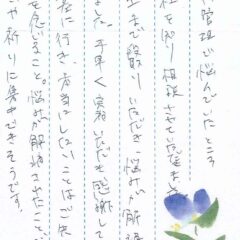 管理で悩んでいたところ
社を知り相談させていただきま
まで段取りいただき、悩みが解
した。手早く いただき感謝して
に行き、 しないことはご先
を念じること。悩みが解消されたこと
や祈りに集中できそうです。